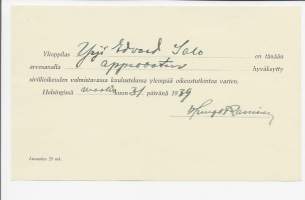 Ylioppilas Yrjö Edvard Salo on tänään
arvosanalla approbatur hyväksytty
siviilioikeuden valmistavassa kuulustelussa ylempää oikeustutkintoa varten.
Helsingissä maalis kuun 31 päivänä 1939
Lunastus 25 mk.